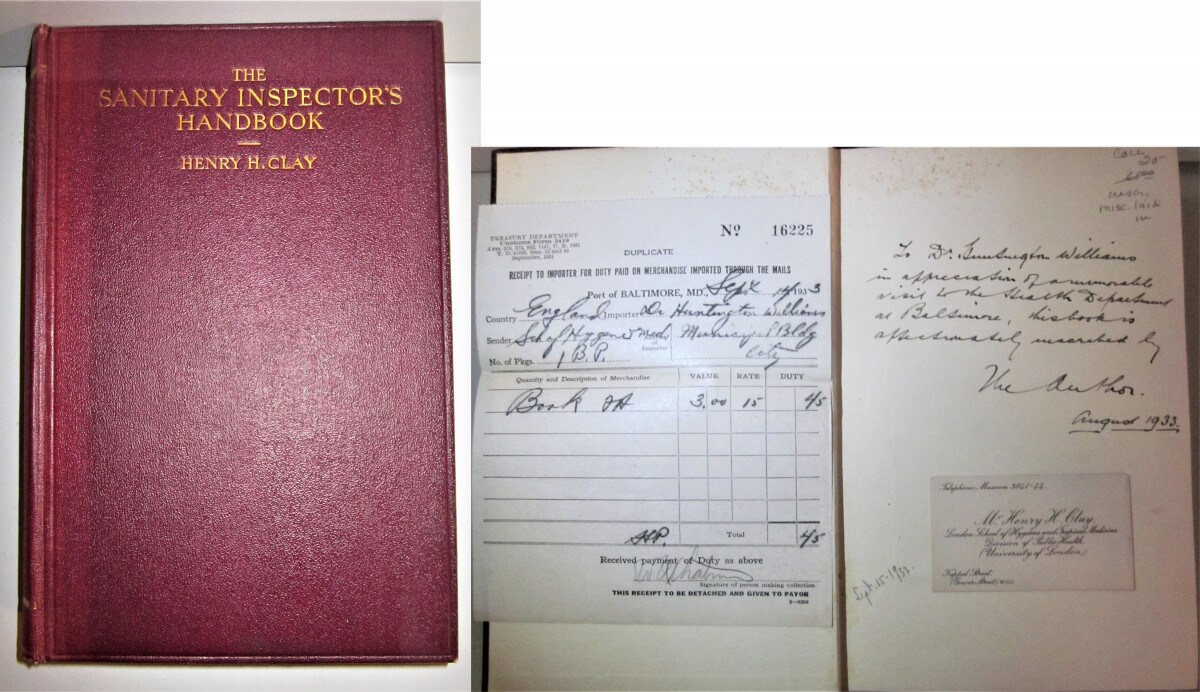 THE
SANITARY INSPECTOR'S
HANDBOOK
HENRY H. CLAY
TREASURY DEPARTMENT
Customs Form 3419
September, 1931
DUPLICATE
No 16225
RECEIPT TO IMPORTER FOR DUTY PAID ON MERCHANDISE IMPORTED THROUGH THE MAILS
Port of BALTIMORE, MD., Sept 14, 1933
Country England Importer Dr Huntington Williams
Sender Sch of Hygiene & Med. Address of Importer Municipal Bldg
City
No. of Pkgs. 1 B.P.
Quantity and Description of Merchandise VALUE RATE DUTY
Book 3.00 15 45
HP. Total 45
Received payment of Duty as above
Signature of person making collection
THIS RECEIPT TO BE DETACHED AND GIVEN TO PAYOR
20
misc. laid
in
To Dr. Huntington Williams
in appreciation of a memorable
visit to the Health Department
at Baltimore, this book is
affectionately inscribed by
The Author.
August 1933.
Telephone Museum 3041
Mr Henry H. Clay
London School of Hygiene and Tropical Medicine
Division of Public Health
(University of London)
Keppel Street
(Gower Street) W.C.1.
Sept. 15-1933.